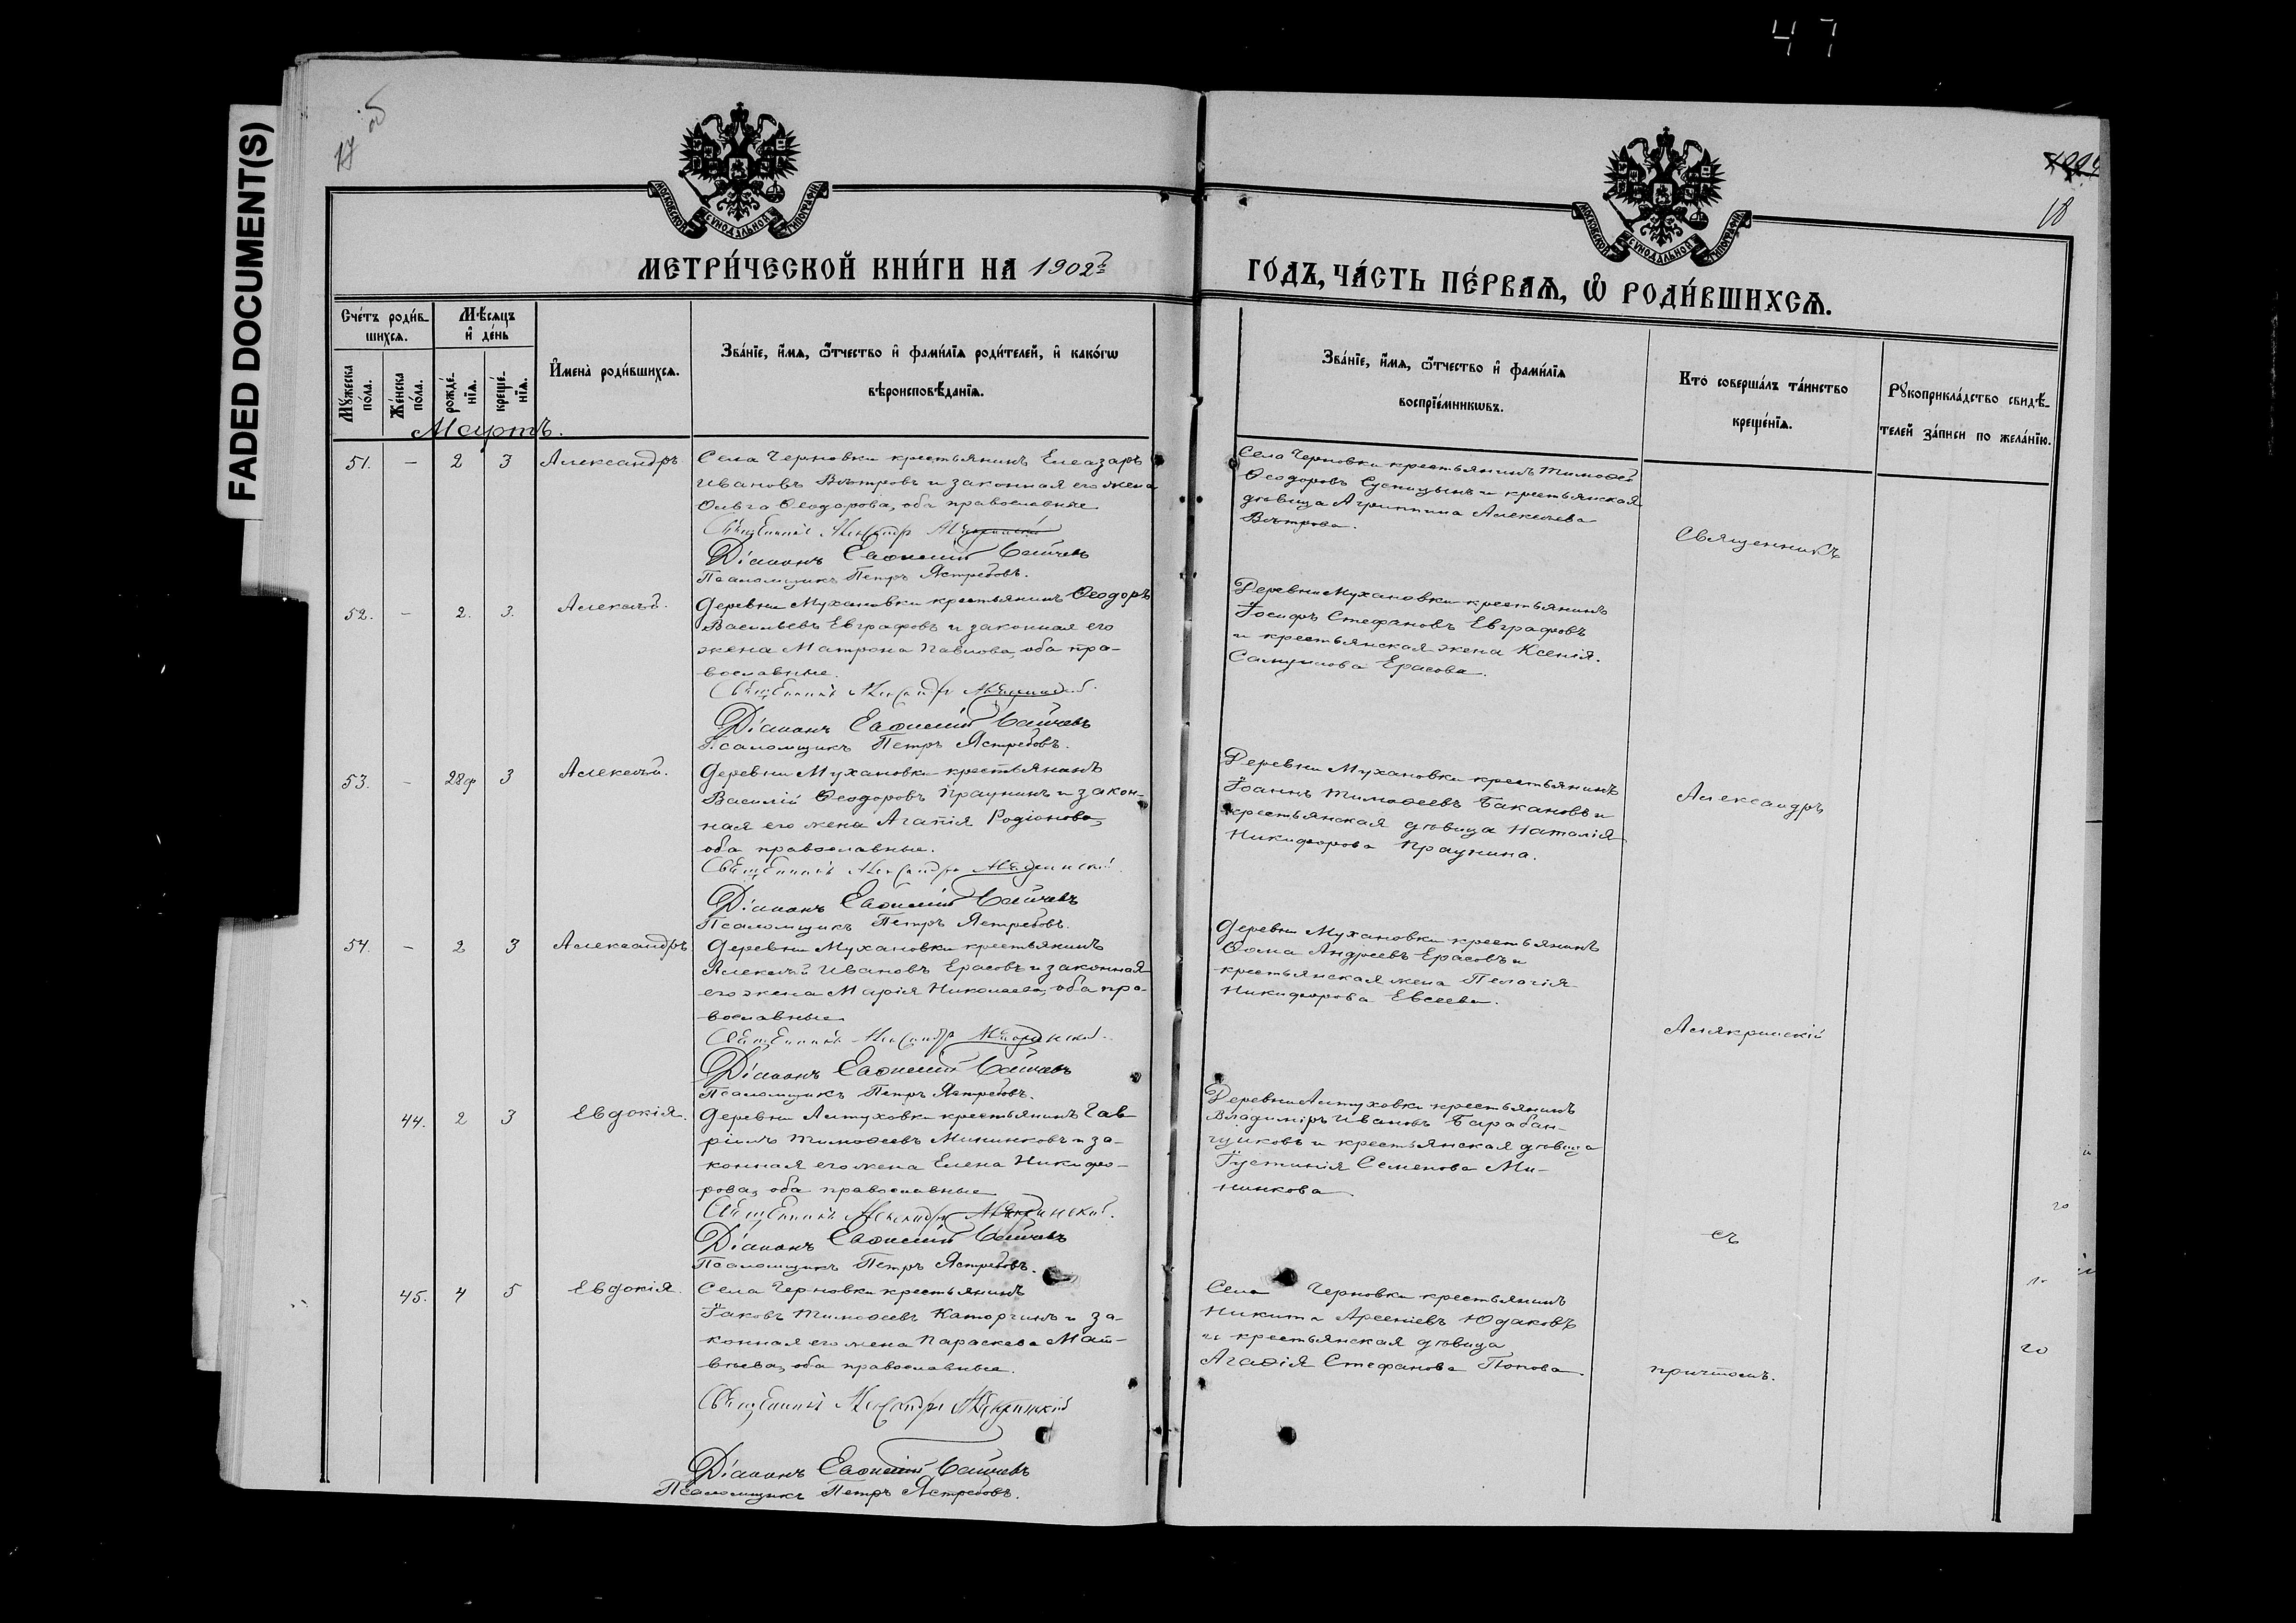 47
FADED DOCUMENT(S)
17 об
18
МОСКОВСКОЙ СѴНОДАЛЬНОЙ ТИПОГРАФІИ
МОСКОВСКОЙ СѴНОДАЛЬНОЙ ТИПОГРАФІИ
МЕТРИ́ЧЕСКОЙ КНИ́ГИ НА 1902й
ГО́ДЪ, ЧА́СТЬ ПЕ́РВАѦ, Ѡ҆ РОДИ́ВШИХСѦ.
Сче́тъ роди́в-
шихся.
Мѣ́сяцъ
и҆ де́нь
Му́жеска
по́ла.
Же́нска
по́ла.
рожде́-
нїя.
креще́-
нїя.
И҆мена̀ роди́вшихся.
Зва́нїе, и҆́мя, ѻ҆́тчество и҆ фами́лїя роди́телей, и҆ како́гѡ
вѣроисповѣ́данїя.
Зва́нїе, и҆́мя, ѻ҆́тчество и҆ фами́лїя
воспрїе́мникѡвъ.
Кто̀ соверша́лъ та́инство
креще́нїя.
Рꙋкоприкла́дство свидѣ́-
телей за́писи по жела́нїю.
Мартъ.
51. — 2 3 Александръ
Села Черновки крестьянинъ Елеазаръ
Ивановъ Вѣтровъ и законная его жена
Ольга Ѳеодорова, оба православные
Священникъ Александръ
Діаконъ Евѳимій
Псаломщикъ Петръ Ястребовъ.
Села Черновки крестьянинъ Тимоѳей
Ѳеодоровъ и крестьянская
дѣвица Агриппина Алексѣева
Вѣтрова.
52. — 2. 3. Алексѣй.
Деревни Мухановки крестьянинъ Ѳеодоръ
Васильевъ Евграфовъ и законная его
жена Матрона Павлова, оба пра-
вославные.
Священникъ Александръ
Діаконъ Евѳимій
Псаломщикъ Петръ Ястребовъ.
Деревни Мухановки крестьянинъ
Іосифъ Стефановъ Евграфовъ
и крестьянская жена Ксенія.
Самуилова Ерасова.
53. — 28ф 3 Алексѣй.
Деревни Мухановки крестьянинъ
Василій Ѳеодоровъ Праунинъ и закон-
ная его жена Агапія Родіонова,
оба православные.
Священникъ Александръ
Діаконъ Евѳимій
Псаломщикъ Петръ Ястребовъ.
Деревни Мухановки крестьянинъ
Іоаннъ Тимоѳеевъ Бакановъ и
крестьянская дѣвица Наталія
Никифорова Праунина.
54. — 2 3 Александръ
Деревни Мухановки крестьянинъ
Алексѣй Ивановъ Ерасовъ и законная
его жена Марія Николаева, оба пра-
вославные
Священникъ Александръ
Діаконъ Евѳимій
Псаломщикъ Петръ Ястребовъ.
Деревни Мухановки крестьянинъ
Ѳома Андреевъ Ерасовъ и
крестьянская жена Пелагія
Никифорова Евсеева.
44. 2 3 Евдокія.
Деревни Алтуховки крестьянинъ Гав-
ріилъ Тимоѳеевъ Мининковъ и за-
конная его жена Елена Никифо-
рова, оба православные
Священникъ Александръ
Діаконъ Евѳимій
Псаломщикъ Петръ Ястребовъ.
Деревни Алтуховки крестьянинъ
Владиміръ Ивановъ Барабан-
щиковъ и крестьянская дѣвица
Іустинія Семенова Ми-
нинкова
45. 4 5 Евдокія.
Села Черновки крестьянинъ
Іаковъ Тимоѳеевъ Каторгинъ и за-
конная его жена Параскева Мат-
вѣева, оба православные.
Священникъ Александръ
Діаконъ Евѳимій
Псаломщикъ Петръ Ястребовъ.
Села Черновки крестьянинъ
Никита Арсеніевъ Юдаковъ
и крестьянская дѣвица
Агаѳія Стефанова Попова.
Священникъ
Александръ
съ
причтомъ.